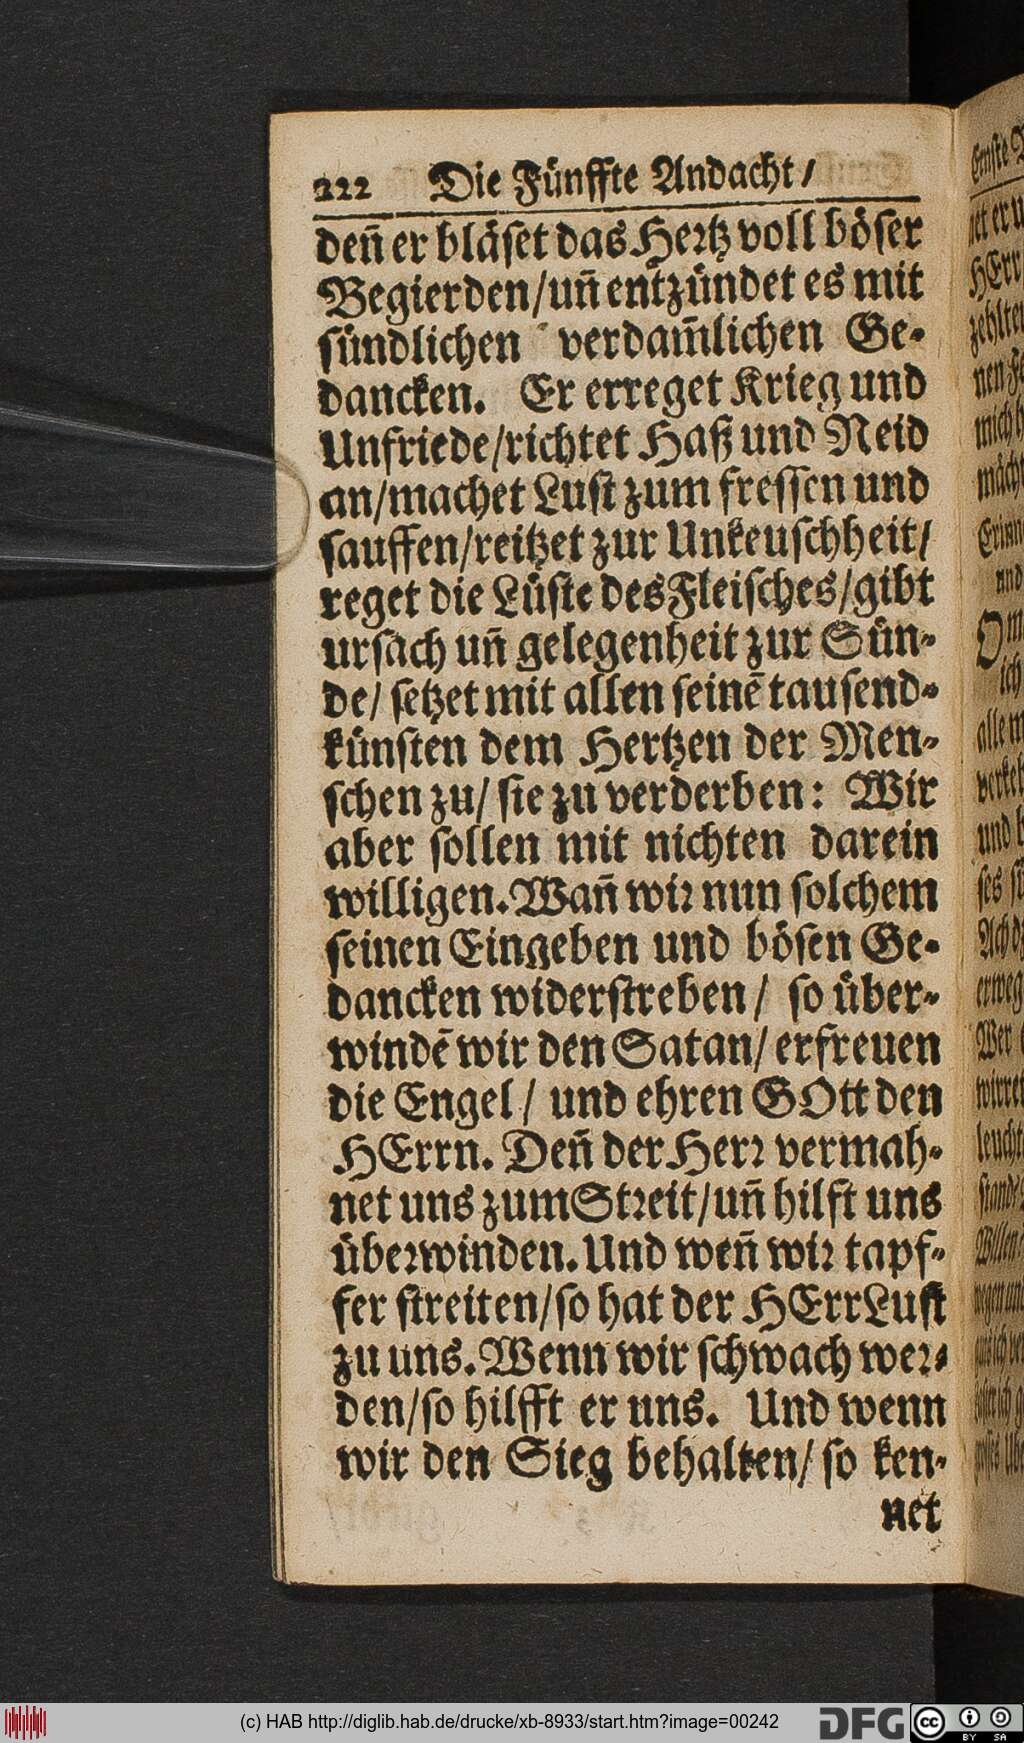 222 Die Fünffte Andacht/
deñ er bläset das Hertz voll böser
Begierden/uñ entzündet es mit
sündlichen verdam̃lichen Ge-
dancken. Er erreget Krieg und
Unfriede/richtet Haß und Neid
an/machet Lust zum fressen und
sauffen/reitzet zur Unkeuschheit/
reget die Lüste des Fleisches/gibt
ursach uñ gelegenheit zur Sün-
de/ setzet mit allen seinẽ tausend-
künsten dem Hertzen der Men-
schen zu/ sie zu verderben: Wir
aber sollen mit nichten darein
willigen. Wañ wir nun solchem
seinen Eingeben und bösen Ge-
dancken widerstreben/ so über-
windẽ wir den Satan/ erfreuen
die Engel/ und ehren GOtt den
HErrn. Deñ der Herr vermah-
net uns zum Streit/uñ hilft uns
überwinden. Und weñ wir tapf-
fer streiten/so hat der HErr Lust
zu uns. Wenn wir schwach wer-
den/so hilfft er uns. Und wenn
wir den Sieg behalten/ so ken-
net
Ernste
net er
HErr
zehlten
mich
mächt
und
ich
alle
und
ses
Wer
(c) HAB http://diglib.hab.de/drucke/xb-8933/start.htm?image=00242
DFG
cc
BY SA